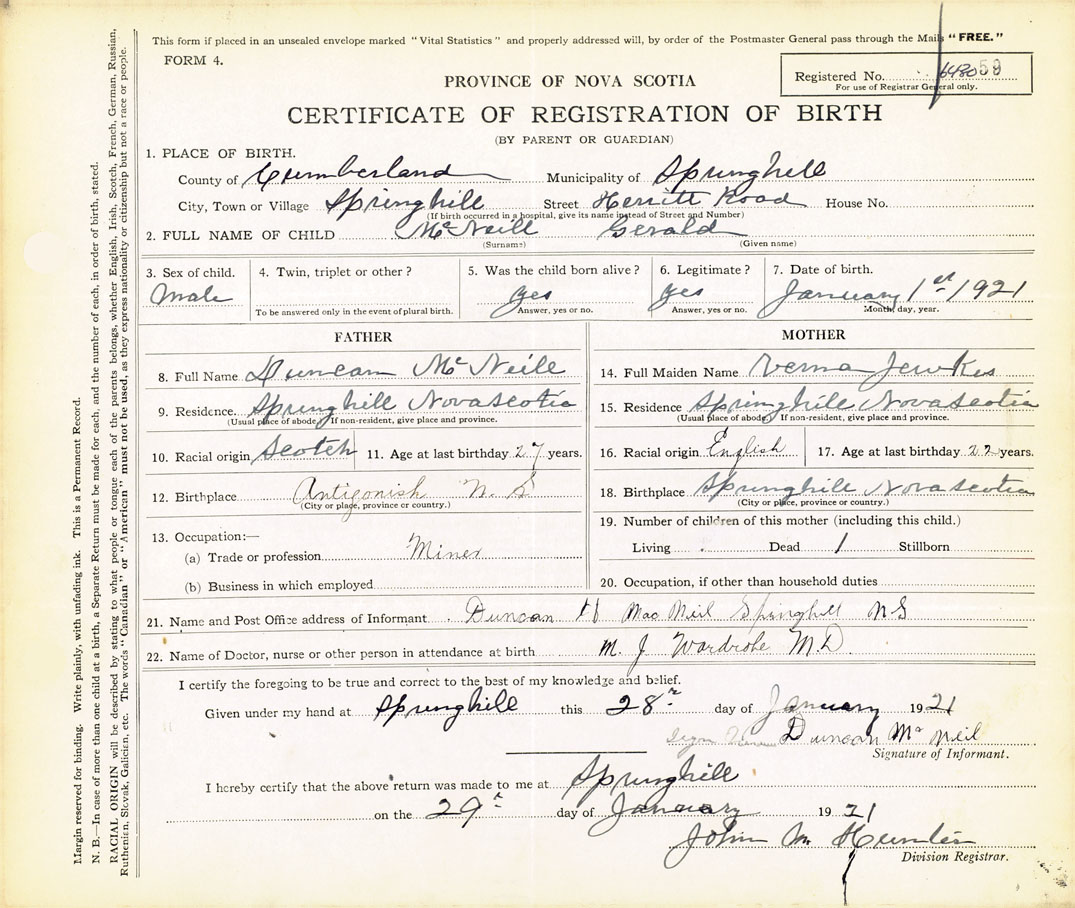 This form if placed in an unsealed envelope marked "Vital Statistics" and properly addressed will, by order of the Postmaster General pass through the Mails "FREE."
FORM 4.
Registered No. 59
For use of Registrar General only.
PROVINCE OF NOVA SCOTIA
CERTIFICATE OF REGISTRATION OF BIRTH
(BY PARENT OR GUARDIAN)
1. PLACE OF BIRTH.
County of Cumberland Municipality of Springhill
City, Town or Village Springhill Street Herritt Road House No.
(If birth occurred in a hospital, give its name instead of Street and Number)
2. FULL NAME OF CHILD McNeill Gerald
(Surname) (Given name)
3. Sex of child. 4. Twin, triplet or other? 5. Was the child born alive? 6. Legitimate? 7. Date of birth.
Male yes yes January 1st 1921
To be answered only in the event of plural birth. Answer, yes or no. Answer, yes or no. Month, day, year.
FATHER
8. Full Name Duncan McNeill
9. Residence. Springhill Nova Scotia
(Usual place of abode) If non-resident, give place and province.
10. Racial origin Scotch 11. Age at last birthday 27 years.
12. Birthplace Antigonish N. S
(City or place, province or country.)
13. Occupation:—
(a) Trade or profession Miner
(b) Business in which employed
MOTHER
14. Full Maiden Name Verna Jewkes
15. Residence Springhill Nova Scotia
(Usual place of abode) If non-resident, give place and province.
16. Racial origin English 17. Age at last birthday 22 years.
18. Birthplace Springhill Nova Scotia
(City or place, province or country.)
19. Number of children of this mother (including this child.)
Living Dead 1 Stillborn
20. Occupation, if other than household duties
21. Name and Post Office address of Informant Duncan H MacNeil Springhill NS
22. Name of Doctor, nurse or other person in attendance at birth M. J Wardrobe M.D.
I certify the foregoing to be true and correct to the best of my knowledge and belief.
Given under my hand at Springhill this 28 day of January 1921
Duncan Mc Neil
Signature of Informant.
I hereby certify that the above return was made to me at Springhill
on the 29 day of January 1921
John M. Hunter
Division Registrar.
Margin reserved for binding. Write plainly, with unfading ink. This is a Permanent Record.
N. B.—In case of more than one child at a birth, a Separate Return must be made for each, and the number of each, in order of birth, stated.
RACIAL ORIGIN will be described by stating to what people or tongue each of the parents belongs, whether English, Irish, Scotch, French, German, Russian,
Ruthenian, Slovak, Galician, etc. The words "Canadian" or "American" must not be used, as they express nationality or citizenship but not a race or people.